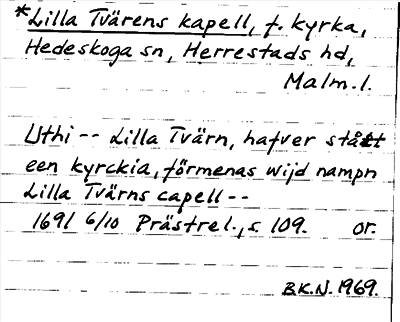 *Lilla Tvärens kapell, f. kyrka,
Hedeskoga sn, Herrestads hd,
Malm. l.
Uthi -- Lilla Tvärn, hafver stått
een kyrckia, förmenas wijd nampn
Lilla Tvärns capell --
1691 6/10 Prästrel., s. 109. or.
B.K.N. 1969.